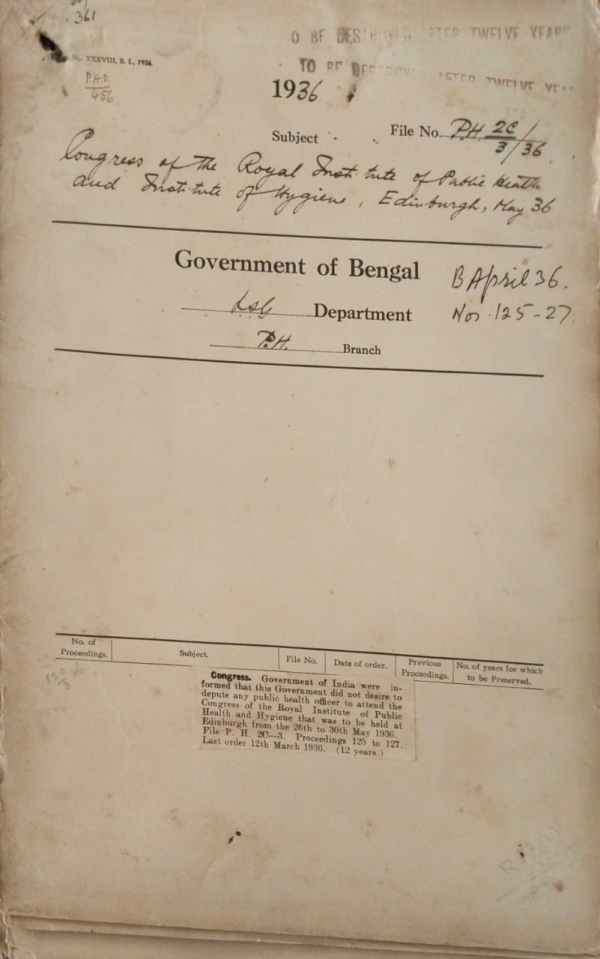 361
No. XXXVIII, S. I., 1934.
P.H.D.
456
O BE DESTROYED AFTER TWELVE YEARS
TO BE DESTROYED AFTER TWELVE YEA
1936
Subject
File No. P.H. 2C/3/36
Congress of the Royal Institute of Public Health
and Institute of Hygiene, Edinburgh, May 36
Government of Bengal
B April 36.
LSG Department
Nos. 125-27.
P.H. Branch
No. of Proceedings.
Subject.
File No.
Date of order.
Previous Proceedings.
No. of years for which to be Preserved.
Congress. Government of India were in-
formed that this Government did not desire to
depute any public health officer to attend the
Congress of the Royal Institute of Public
Health and Hygiene that was to be held at
Edinburgh from the 26th to 30th May 1936.
File P. H. 2C—3. Proceedings 125 to 127.
Last order 12th March 1936. (12 years.)